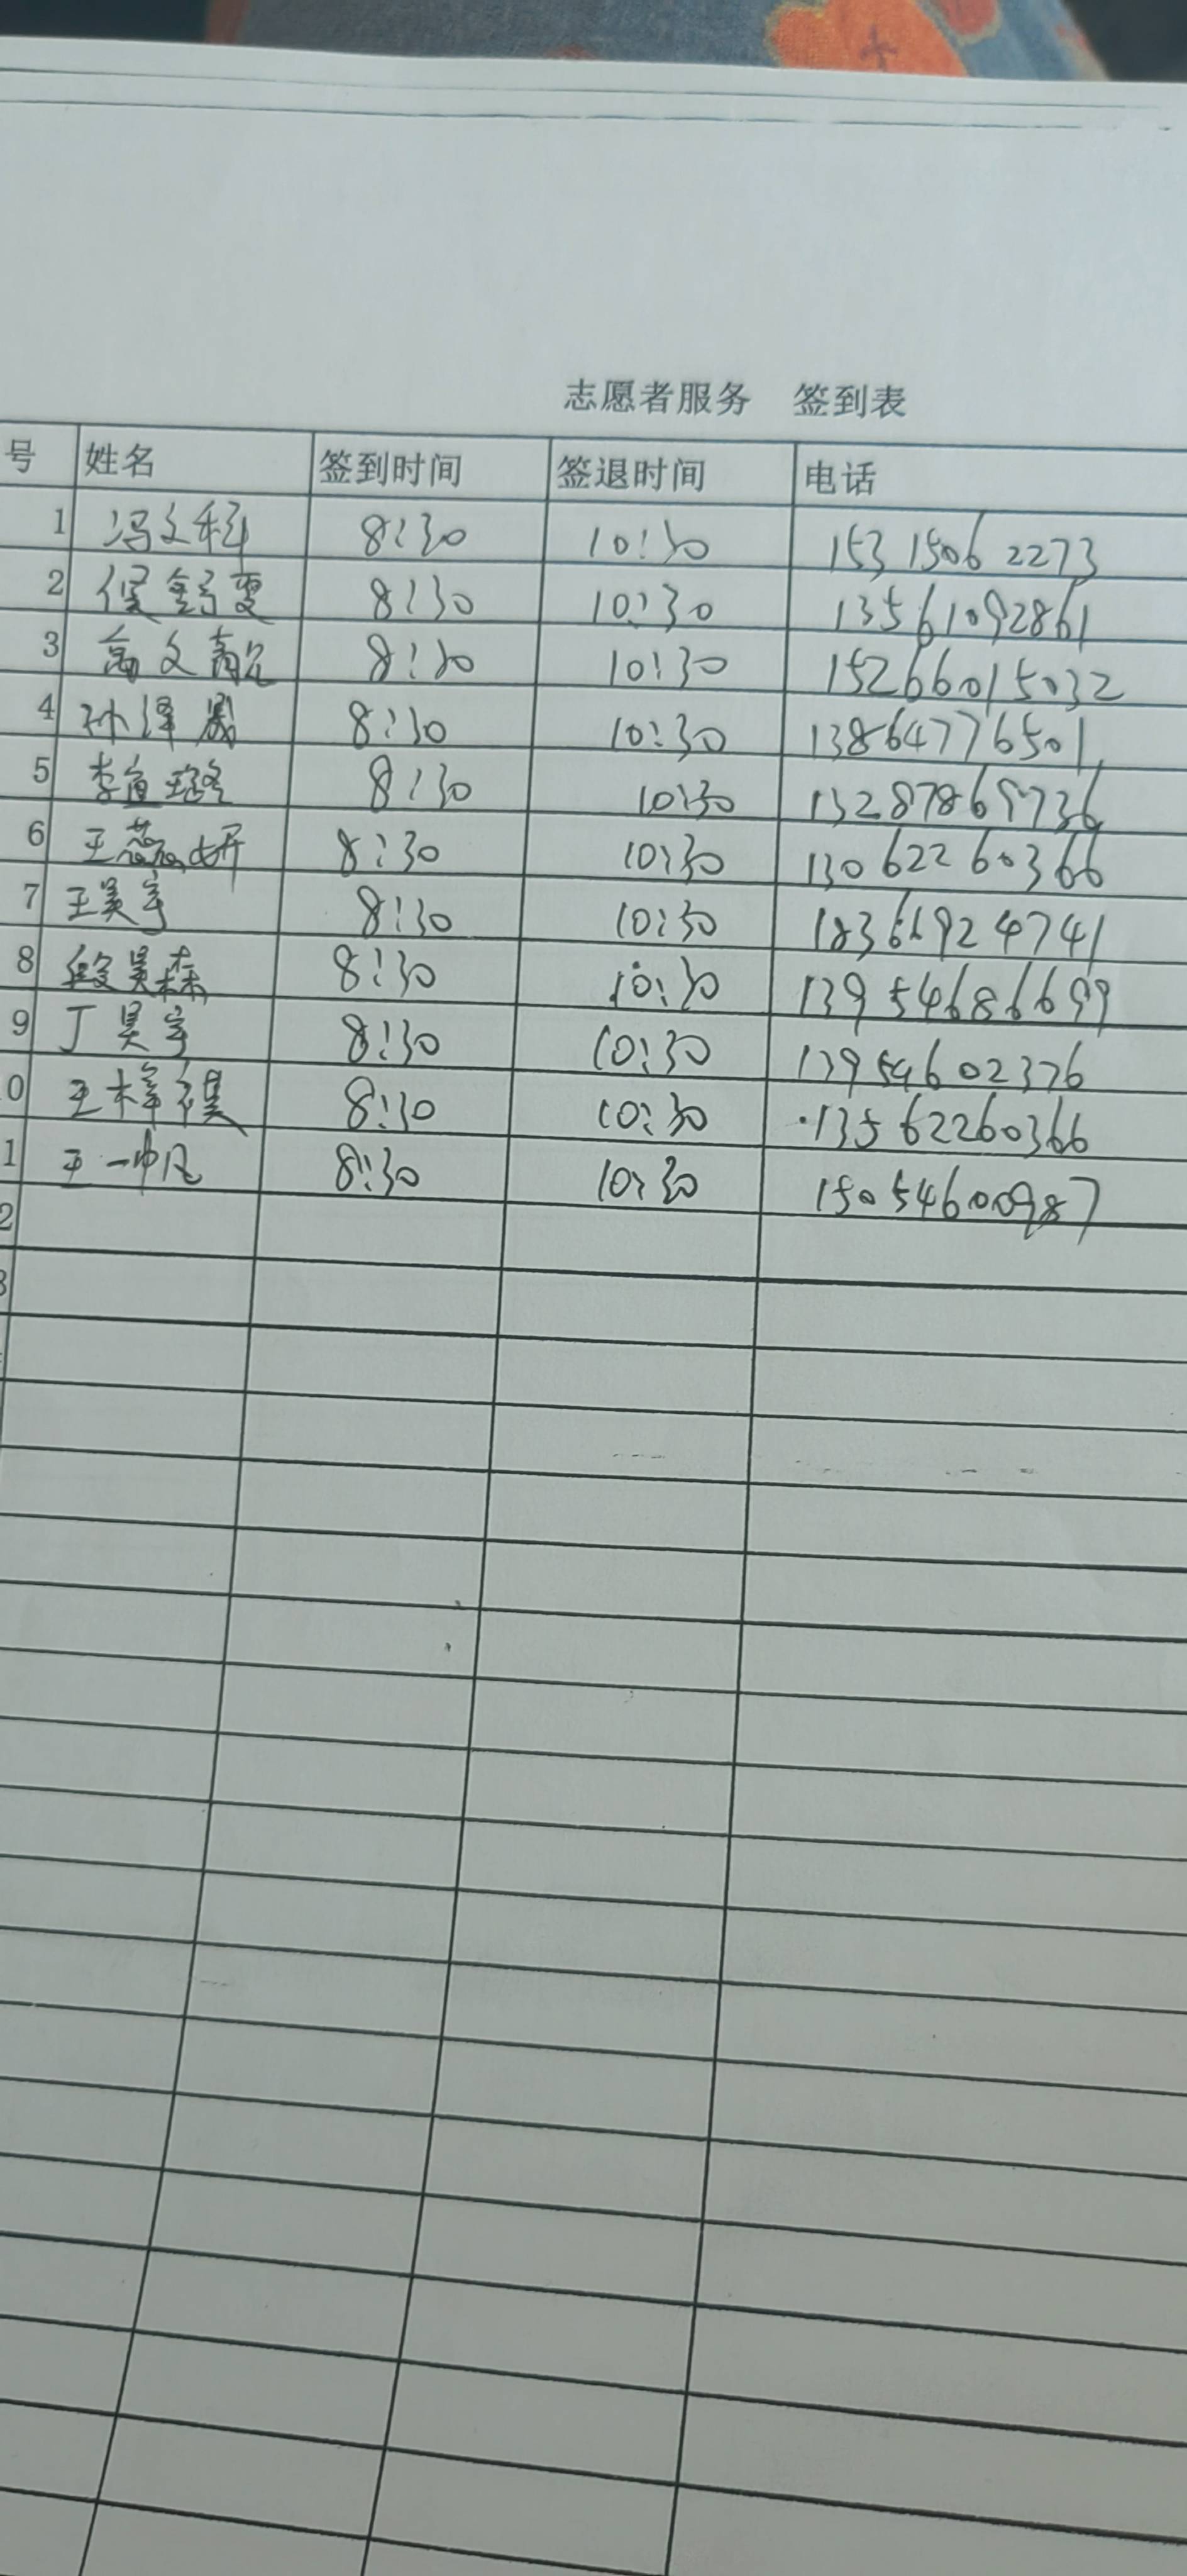 志愿者服务 签到表
号 姓名 签到时间 签退时间 电话
1 冯文科 8:30 10:30 15315062273
2 侯 8:30 10:30 13561092861
3 高文 8:30 10:30 15266015032
4 孙泽晟 8:30 10:30 13864776501
5 李宜璐 8:30 10:30 13287869736
6 王蕊妍 8:30 10:30 13062260366
7 王昊宇 8:30 10:30 18366924741
8 段昊森 8:30 10:30 13954686699
9 丁昊宇 8:30 10:30 13954602376
0 王梓祺 8:30 10:30 13562260366
1 王一帆 8:30 10:30 15054600987
2
3